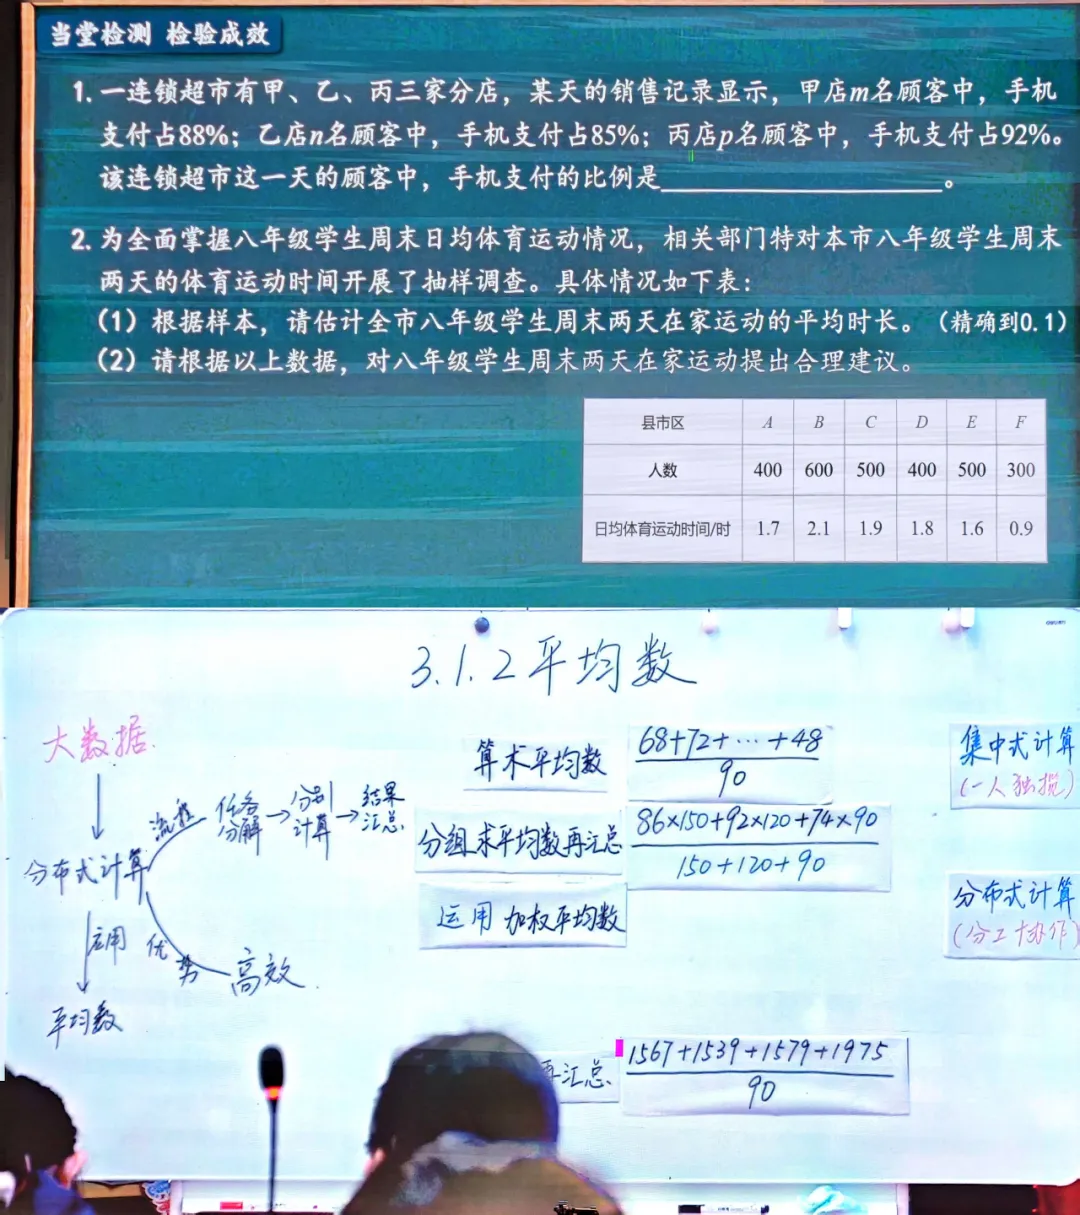 当堂检测 检验成效
1. 一连锁超市有甲、乙、丙三家分店，某天的销售记录显示，甲店m名顾客中，手机
支付占88%；乙店n名顾客中，手机支付占85%；丙店p名顾客中，手机支付占92%。
该连锁超市这一天的顾客中，手机支付的比例是____________________。
2. 为全面掌握八年级学生周末日均体育运动情况，相关部门特对本市八年级学生周末
两天的体育运动时间开展了抽样调查。具体情况如下表：
（1）根据样本，请估计全市八年级学生周末两天在家运动的平均时长。（精确到0.1）
（2）请根据以上数据，对八年级学生周末两天在家运动提出合理建议。
县市区 A B C D E F
人数 400 600 500 400 500 300
日均体育运动时间/时 1.7 2.1 1.9 1.8 1.6 0.9
3.1.2平均数
大数据
分布式计算
应用
平均数
流程
任务分解→分别计算→结果汇总
优势
高效
算术平均数
68+72+…+48
90
分组求平均数再汇总
86×150+92×120+74×90
150+120+90
运用 加权平均数
再汇总
1567+1539+1579+1975
90
集中式计算
(一人独揽)
分布式计算
(分工协作)